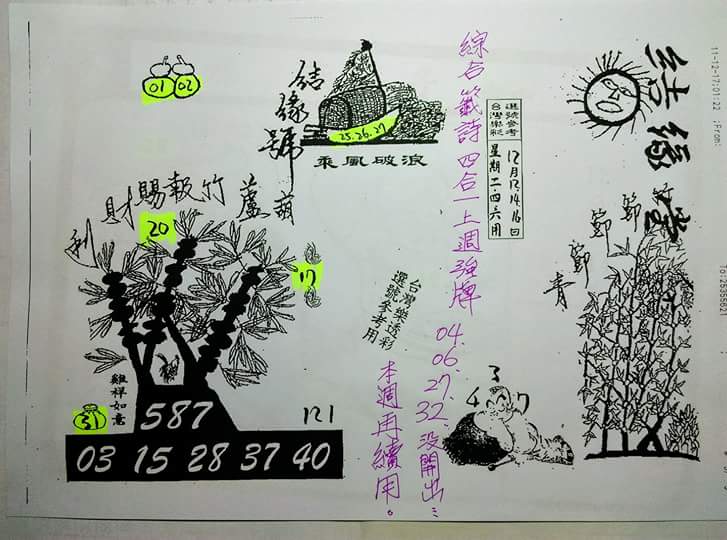 結緣堂
節節節青
11-12-17;01:22 ;From:
To:25355621
選號參考
台灣樂彩
12月12.14.16日
星期二.四.六用
綜合籤詩四合一上週強牌04.06.27.32.没開出:
本週再續用。
結緣號
25.26.27
乘風破浪
01 02
葫蘆竹報賜財利
20
17
台灣樂透彩
選號參考用
3
4 7
雞祥如意
31
587
121
03 15 28 37 40